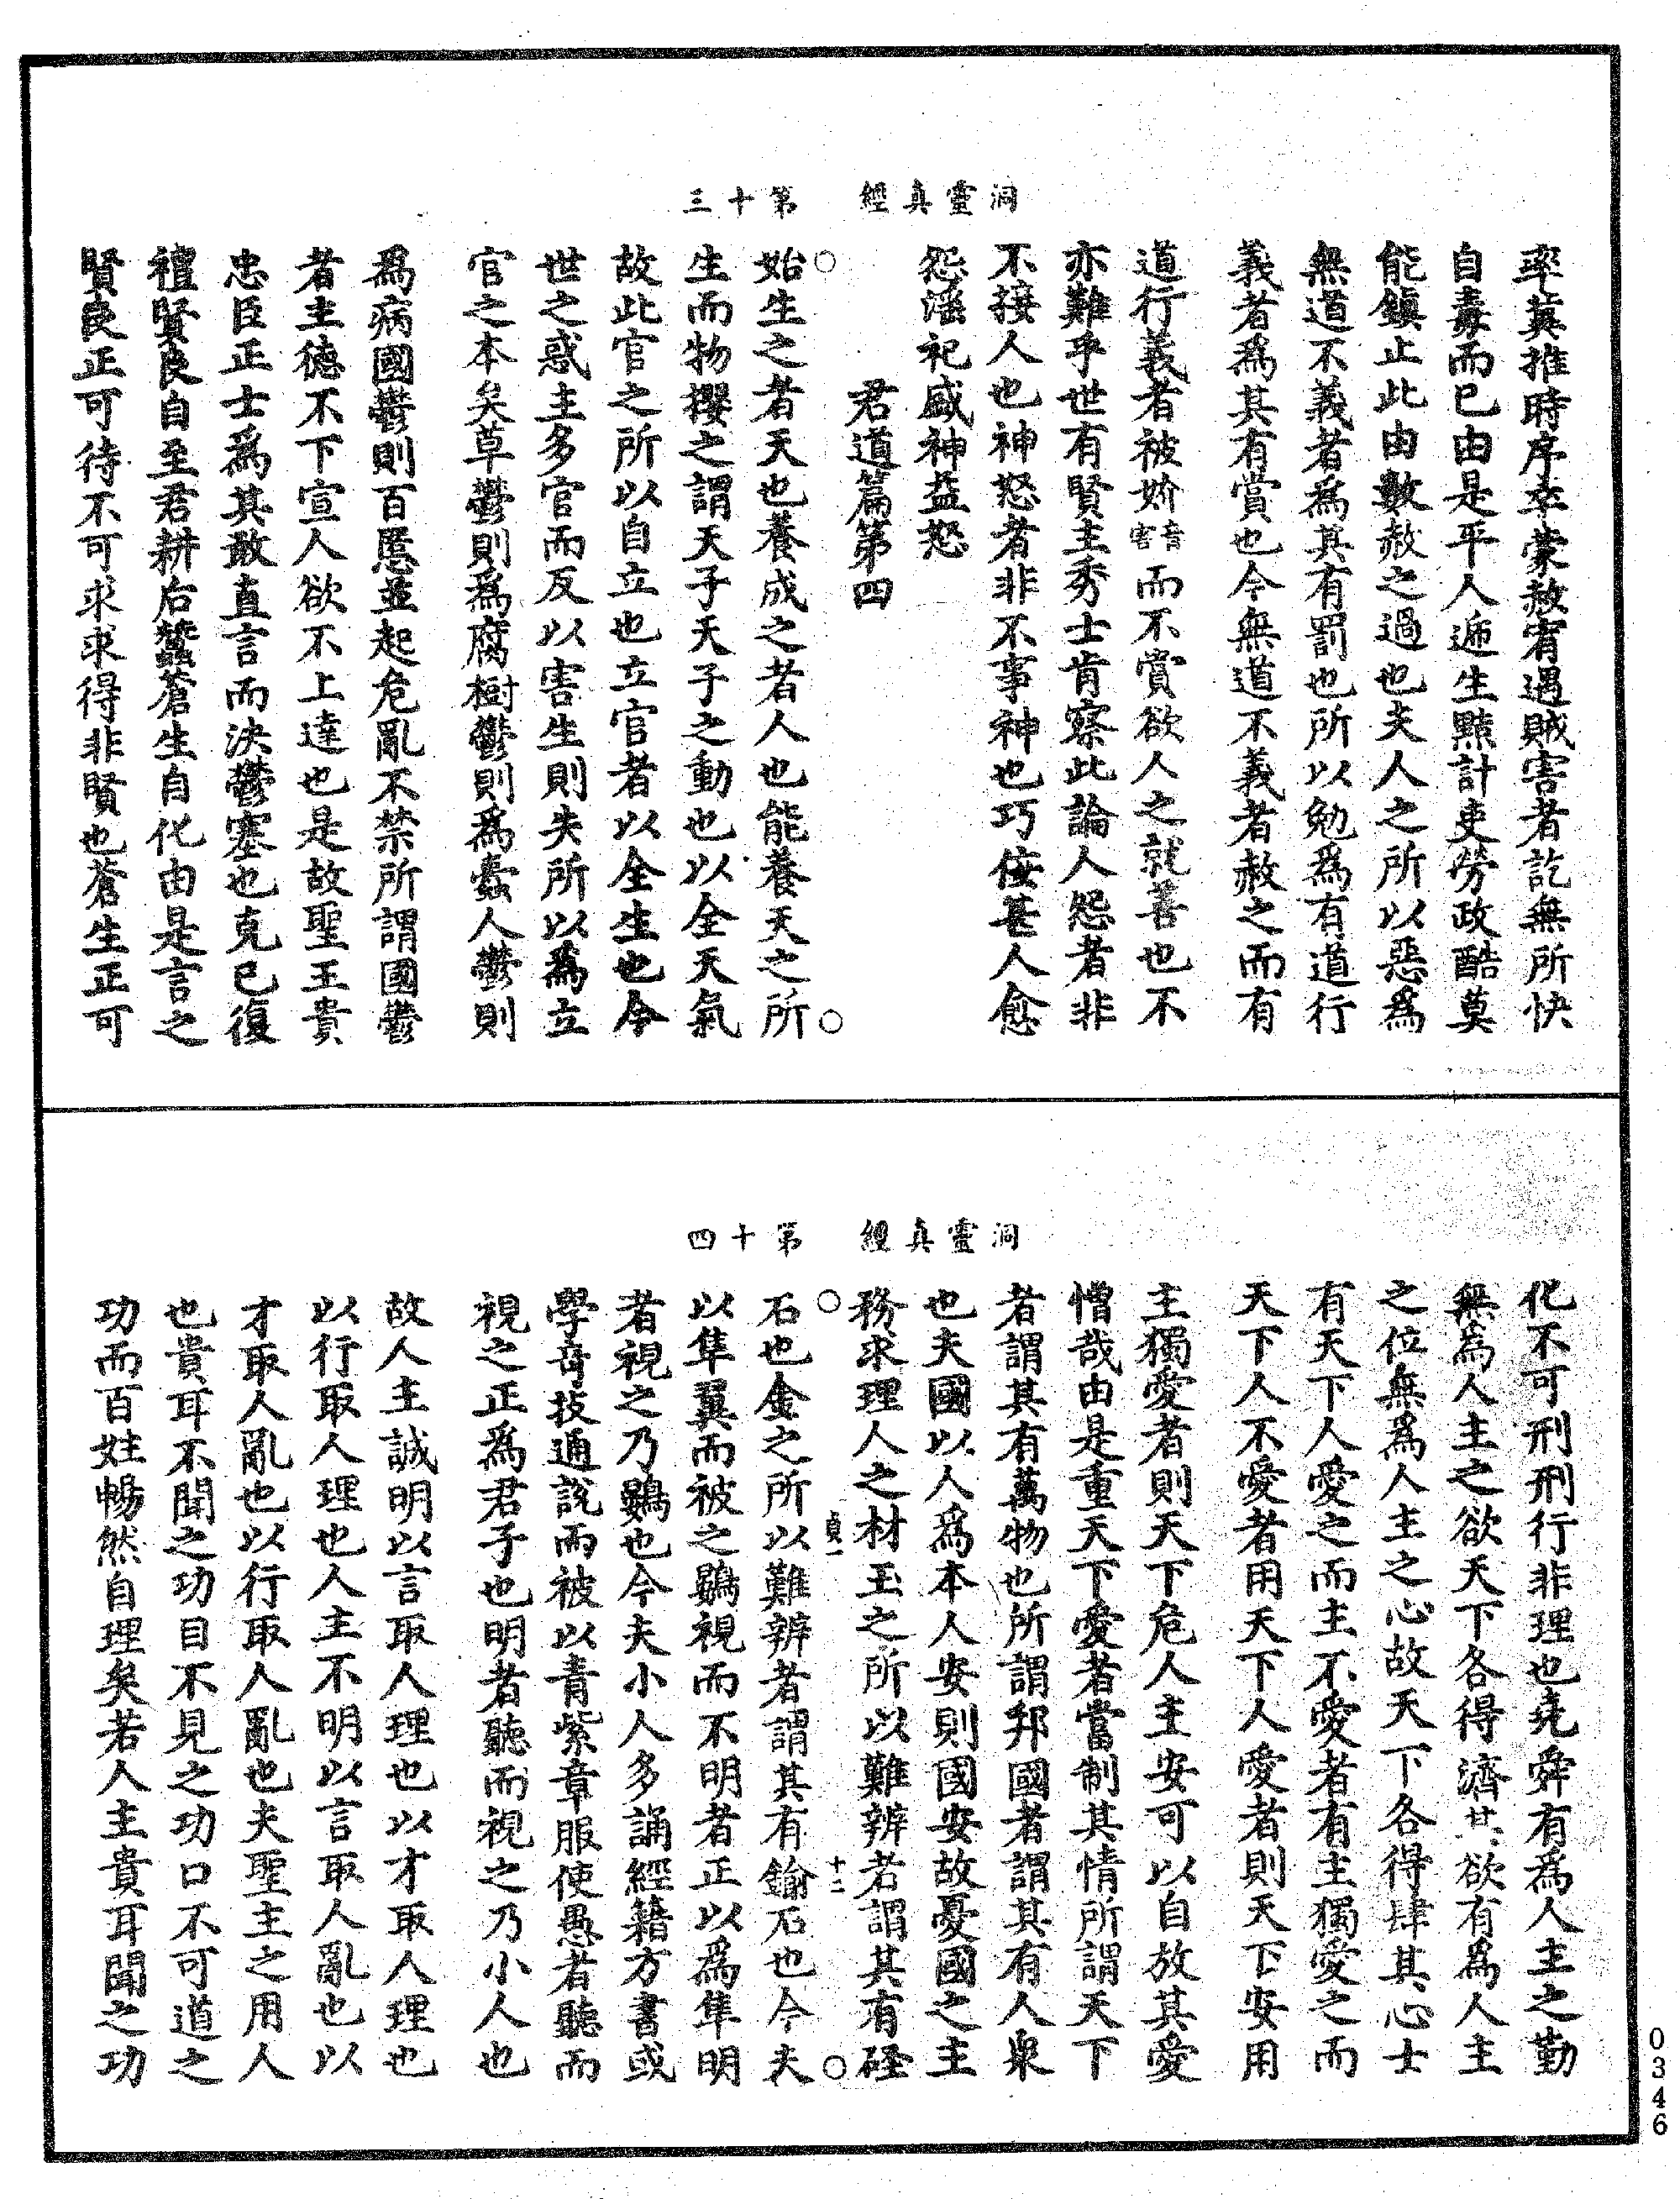 洞靈真經　第十三
率冀推時序卒蒙赦宥遇賊害者訖無所快
自毒而已由是平人遞生黠計吏勞政酷莫
能鎮止此由數赦之過也夫人之所以惡爲
無道不義者爲其有罰也所以勉爲有道行
義者爲其有賞也今無道不義者赦之而有
道行義者被妎音害而不賞欲人之就善也不
亦難乎世有賢主秀士肯察此論人怨者非
不接人也神怒者非不事神也巧佞甚人愈
怨滛祀盛神益怒
君道篇第四
始生之者天也養成之者人也能養天之所
生而物攖之謂天子天子之動也以全天氣
故此官之所以自立也立官者以全生也今
世之惑主多官而反以害生則失所以爲立
官之本矣草鬱則爲腐樹鬱則爲蠹人鬱則
爲病國鬱則百慝並起危亂不禁所謂國鬱
者主德不下宣人欲不上達也是故聖王貴
忠臣正士爲其敢直言而決鬱塞也克已復
禮賢良自至君耕后蠶蒼生自化由是言之
賢良正可待不可求求得非賢也蒼生正可
洞靈真經　第十四
化不可刑刑行非理也堯舜有爲人主之勤
無爲人主之欲天下各得濟其欲有爲人主
之位無爲人主之心故天下各得肆其心士
有天下人愛之而主不愛者有主獨愛之而
天下人不愛者用天下人愛者則天下安用
主獨愛者則天下危人主安可以自放其愛
憎哉由是重天下愛者當制其情所謂天下
者謂其有萬物也所謂邦國者謂其有人衆
也夫國以人爲本人安則國安故憂國之主
務求理人之材玉之所以難辨者謂其有䂫
貞一　十二
石也金之所以難辨者謂其有鍮石也今夫
以隼翼而被之鷃視而不明者正以爲隼明
者視之乃鷃也今夫小人多誦經籍方書或
學奇技通說而被以青紫章服使愚者聽而
視之正爲君子也明者聽而視之乃小人也
故人主誠明以言取人理也以才取人理也
以行取人理也人主不明以言取人亂也以
才取人亂也以行取人亂也夫聖主之用人
也貴耳不聞之功目不見之功口不可道之
功而百姓暢然自理矣若人主貴耳聞之功
0346